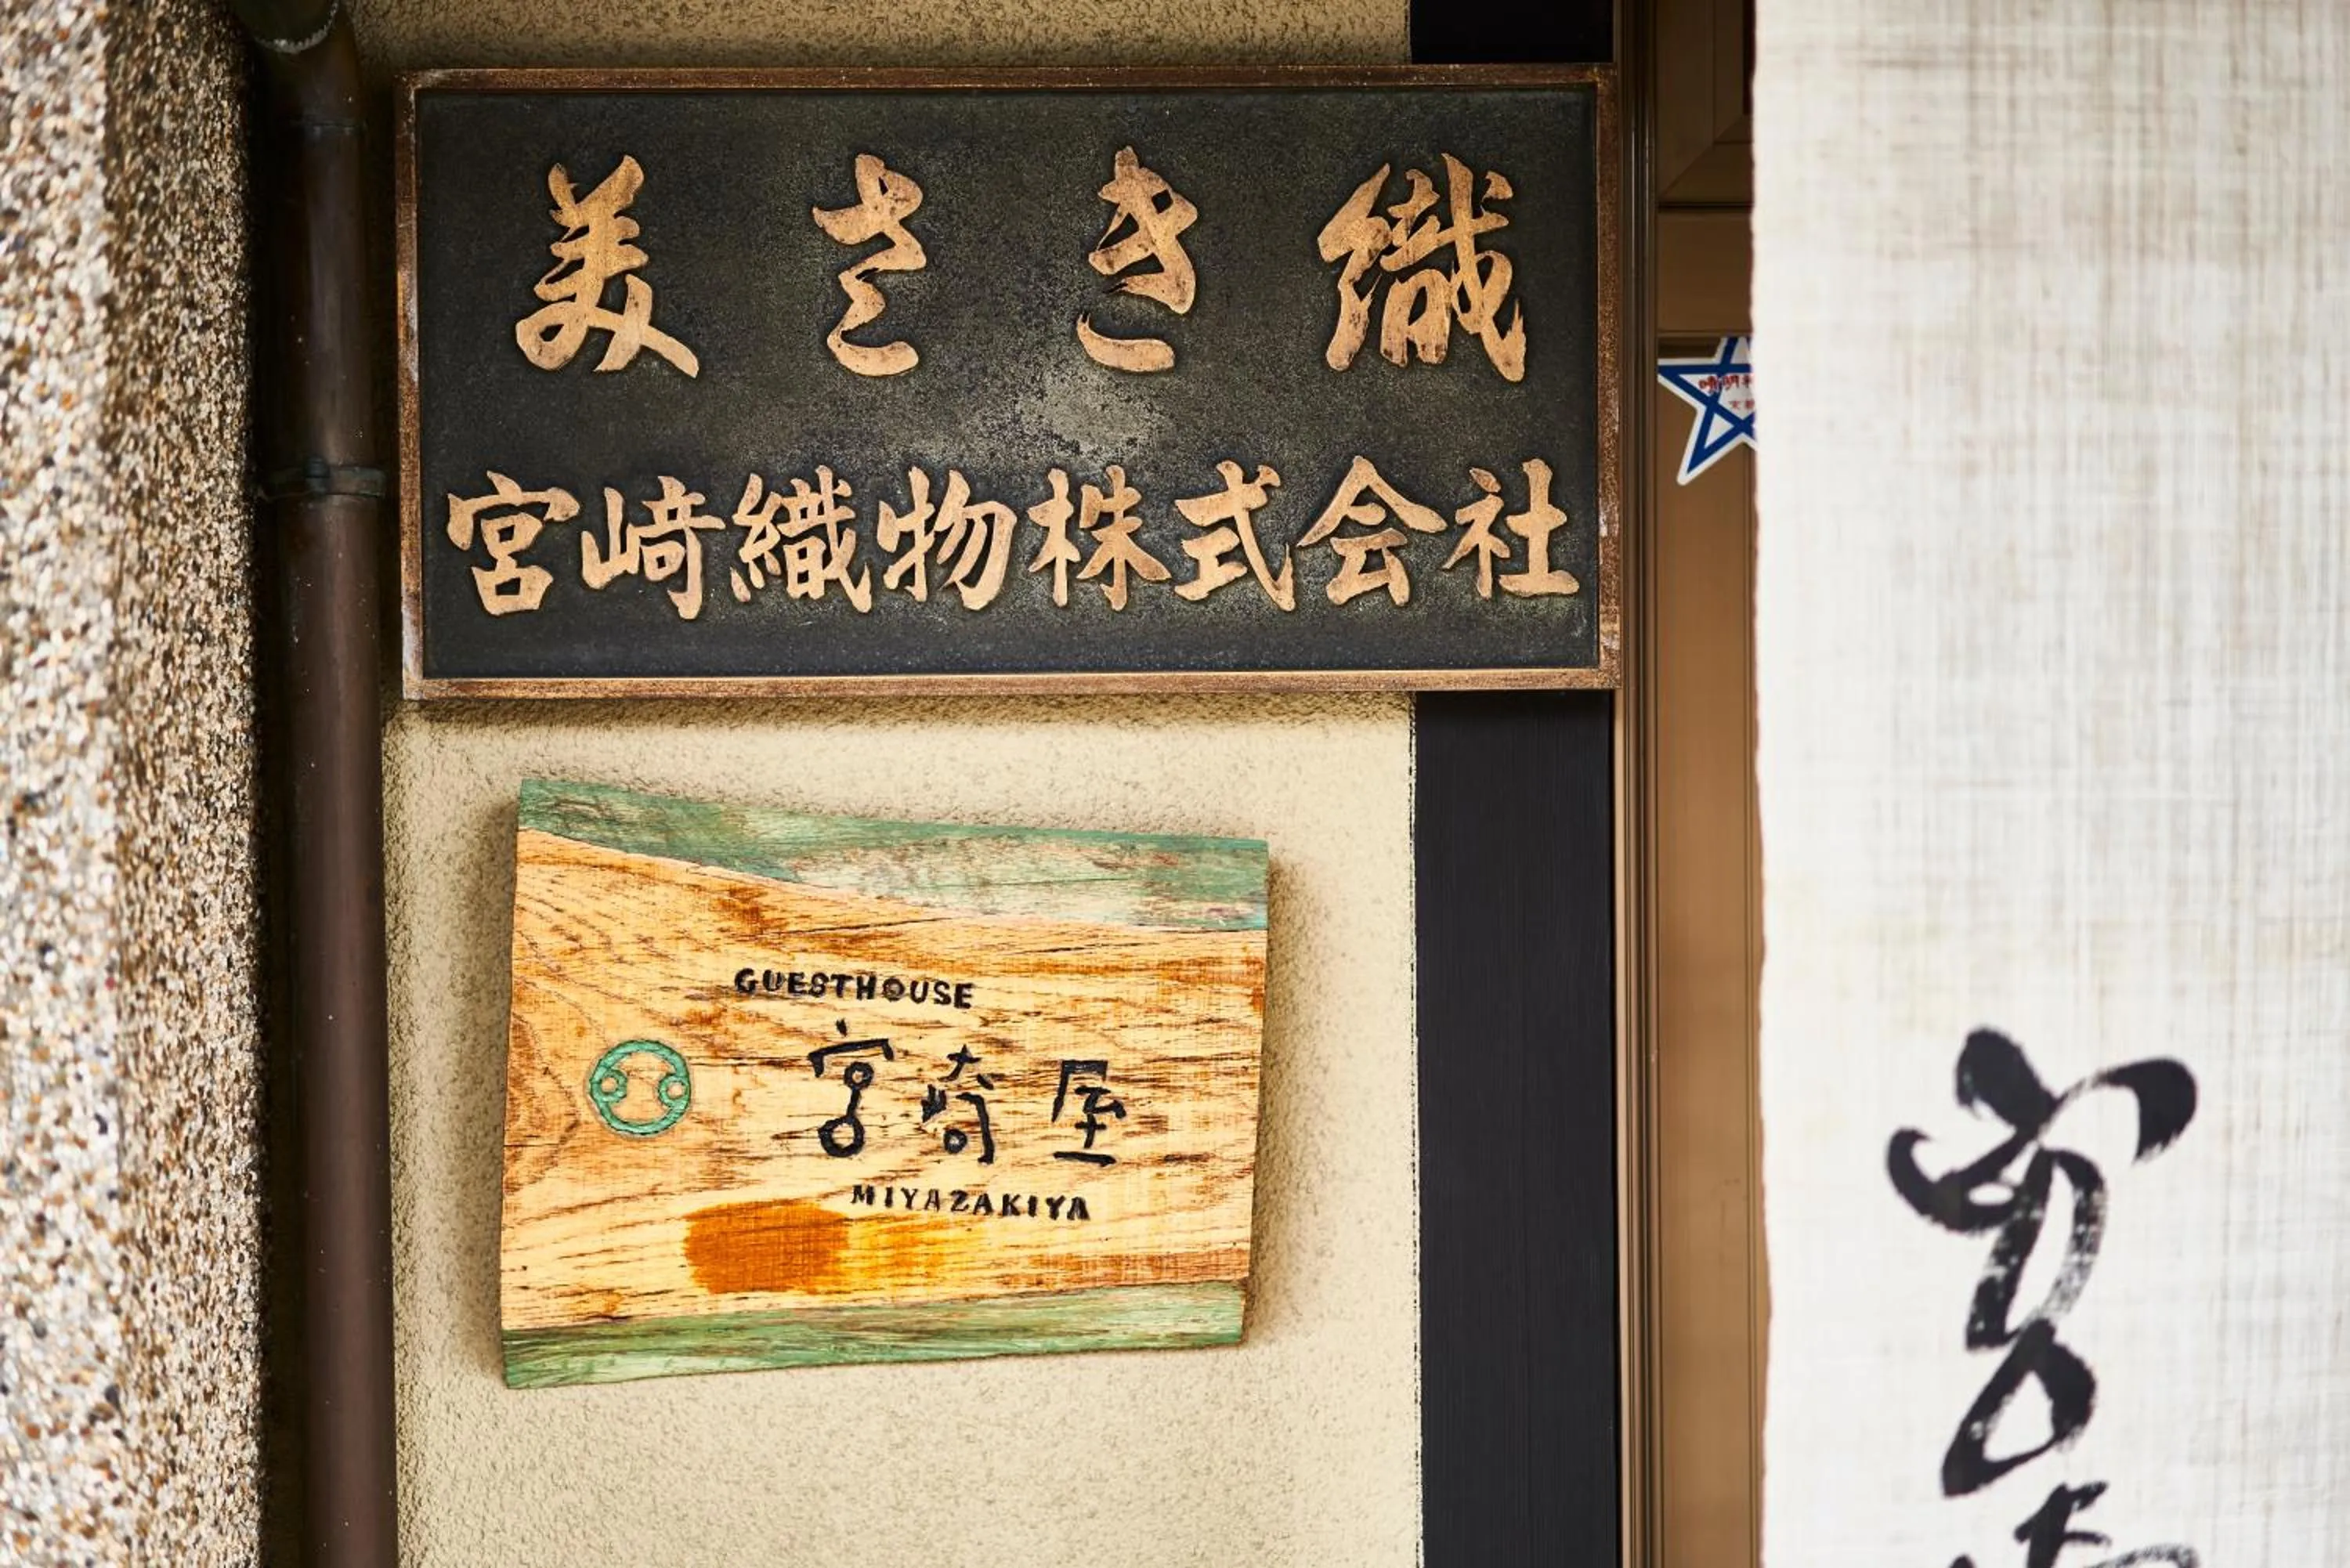 美さき織
宮崎織物株式会社
GUESTHOUSE
宮崎屋
MIYAZAKIYA
宮